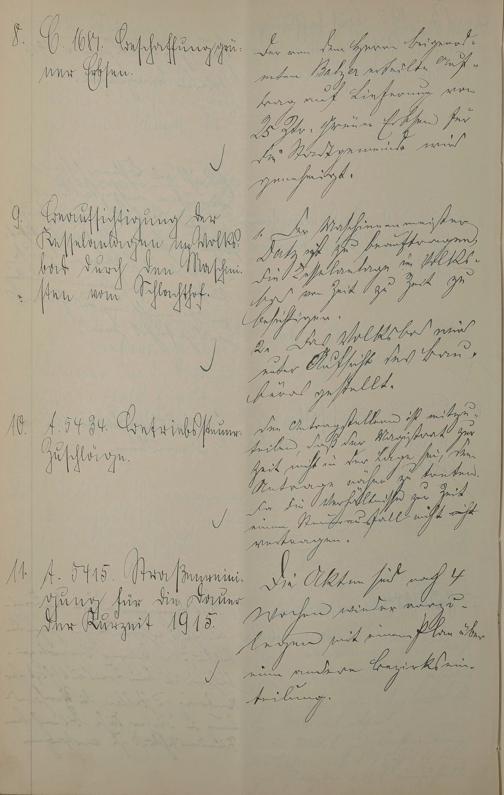 8. C. 1687. Beschaffung grü-
ner Erbsen.
Der von dem Herrn Beigeord-
neten Balzer erteilte Auf-
trag auf Lieferung von
25 Ztr. Grüner Erbsen für
die Stadtgemeinde wird
genehmigt.
9. Beaufsichtigung der
Kesselanlagen im Volks-
bad durch den Maschini-
sten vom Schlachthof.
1. Der Maschinenmeister
ist zu beauftragen,
die Kesselanlage im Volks-
bad von Zeit zu Zeit zu
besichtigen.
2. Das Volksbad wird
unter Aufsicht des Bau-
büros gestellt.
10. A. 5434. Betriebssteuer-
Zuschläge.
Den Antragstellern ist mitzu-
teilen, daß der Magistrat zur
Zeit nicht in der Lage sei, dem
Antrage näher zu treten.
da die Verhältnisse zur Zeit
einen Steuerausfall nicht
vertragen.
11. A. 5415. Straßenreini-
gung für die Dauer
der Kurzeit 1915.
Die Akten sind nach 4
Wochen wieder vorzu-
legen mit einem Plan über
eine andere Bezirksein-
teilung.